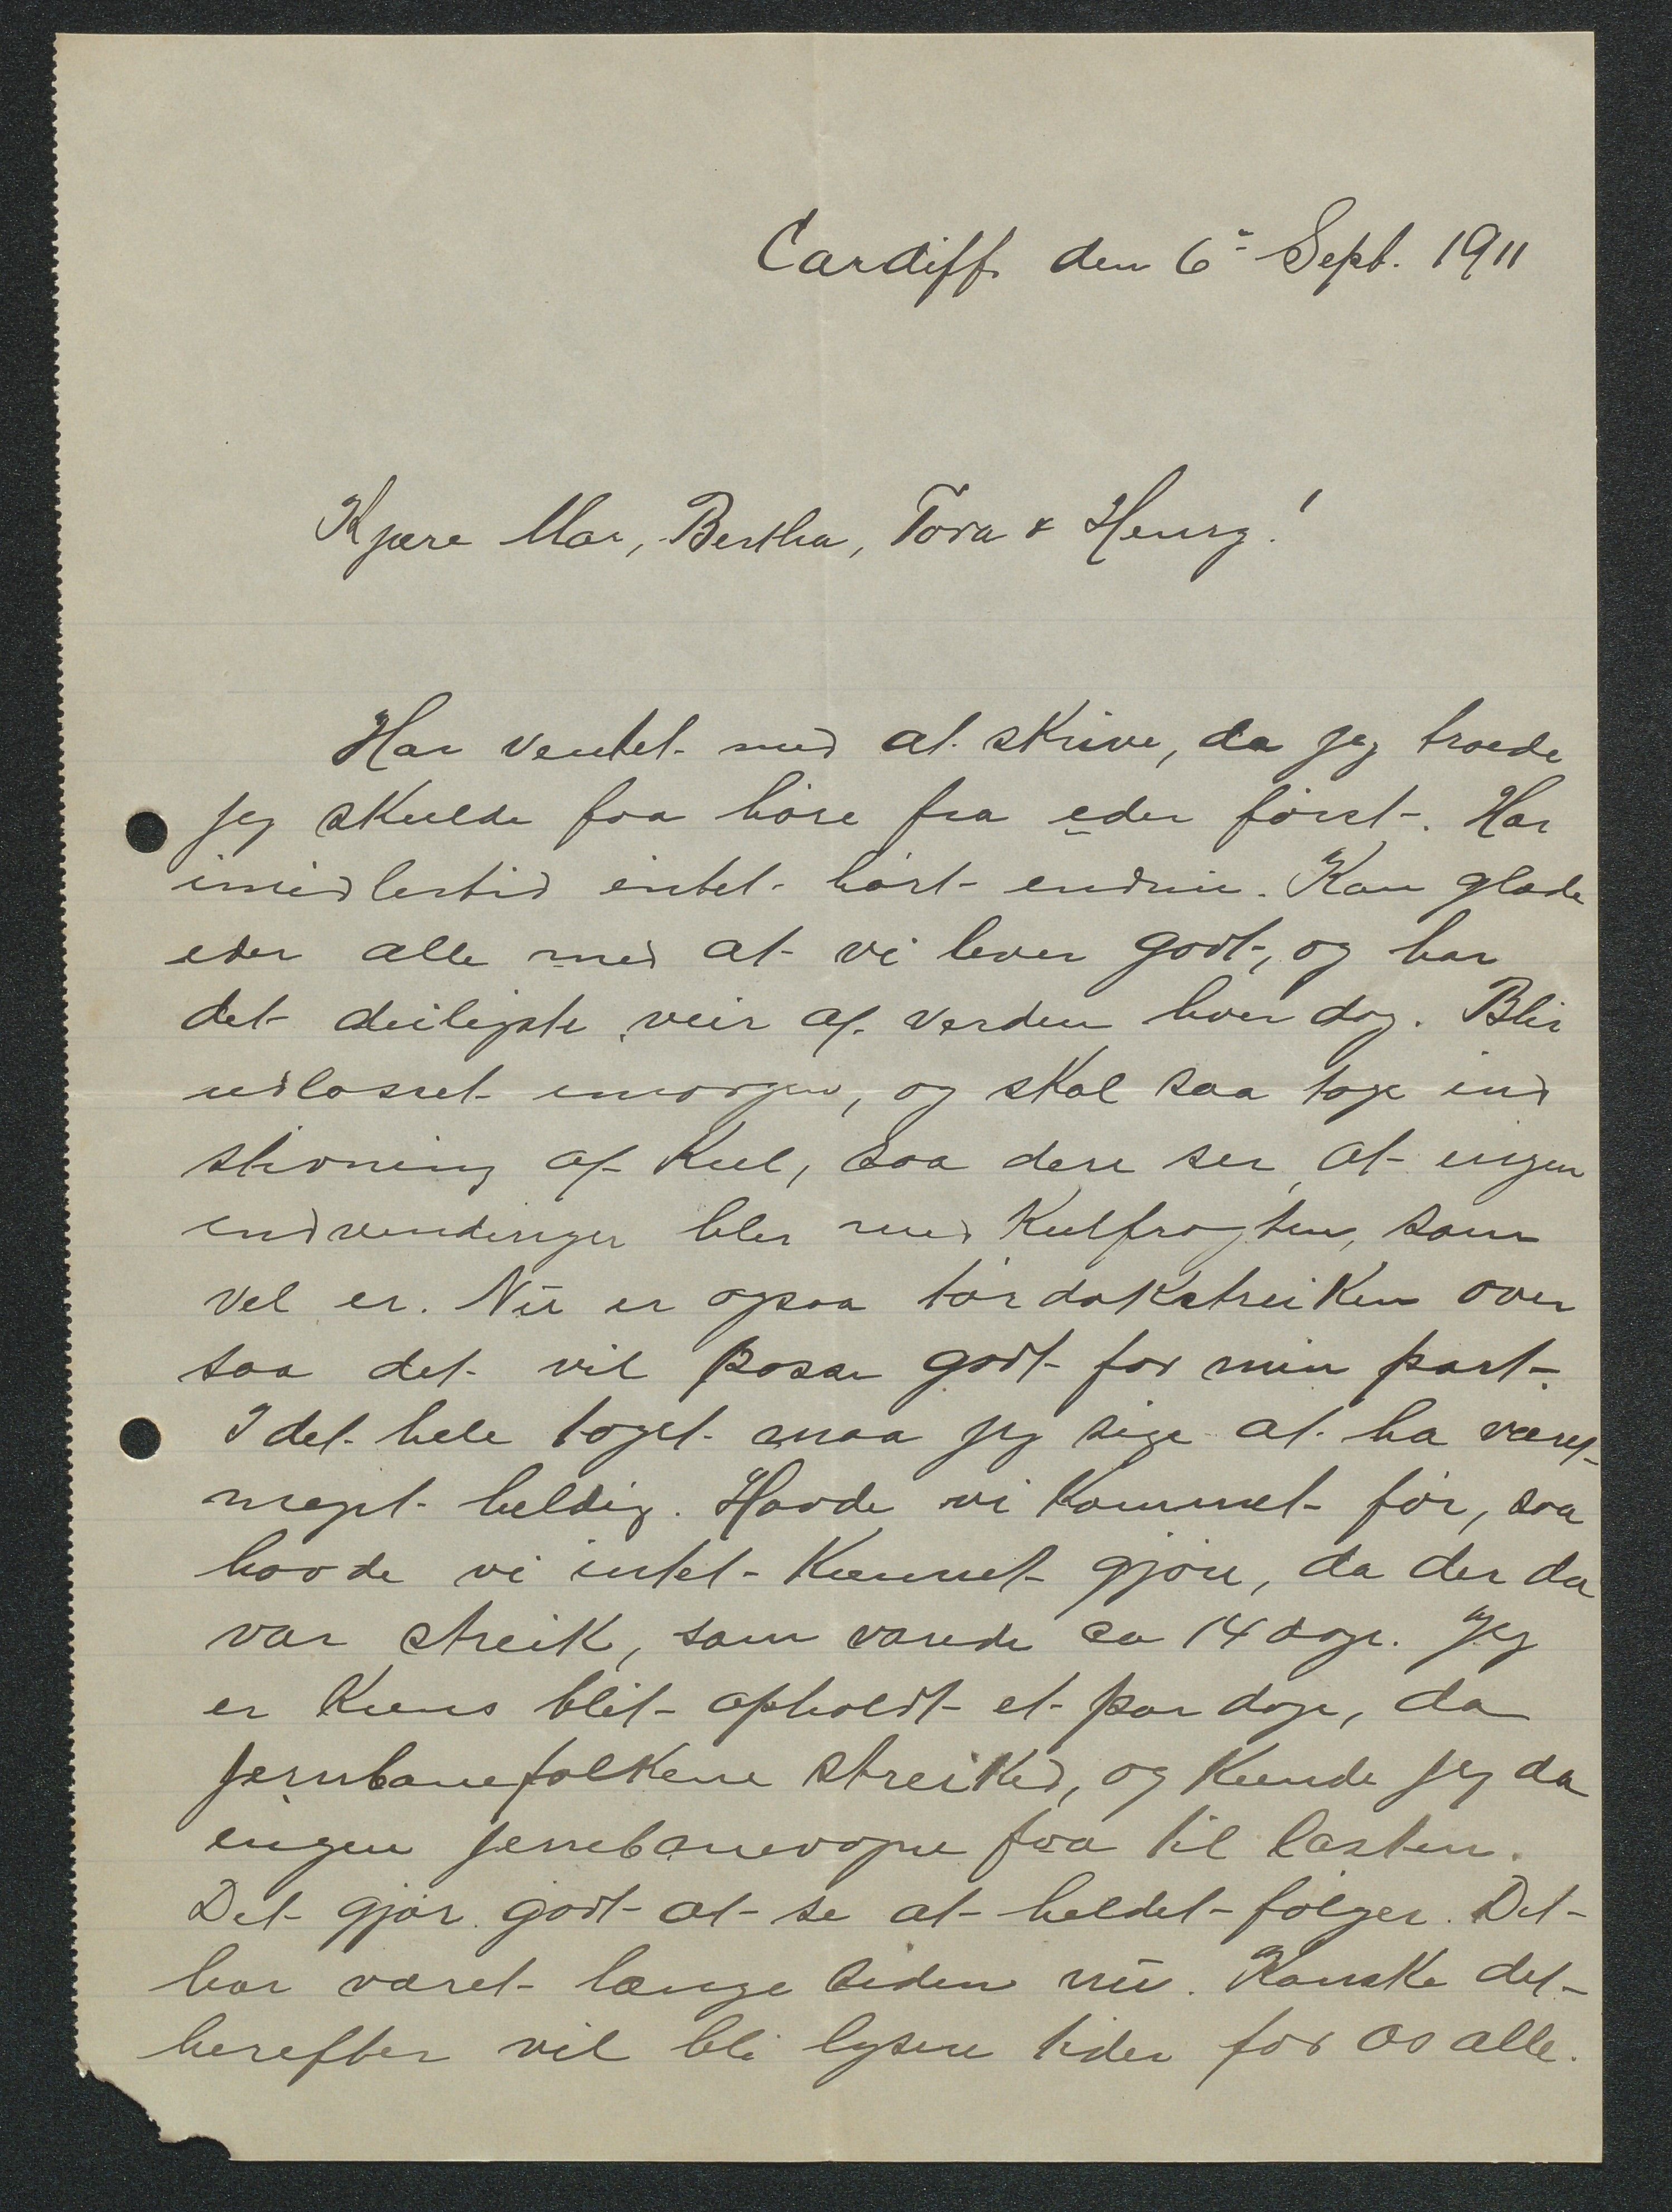 Cardiff den 6- Sept. 1911
Kjære Mor, Bertha, Tora & Henry!
Har ventet med at skrive, da jeg troede
jeg skulde faa höre fra eder först. Har
imidlertid intet hört endnu. Kan glæde
eder alle med at vi lever godt, og har
det deiligste veir af verden hver dag. Blir
udlosset imorgen, og skal saa tage ind
stivning af Kul, saa dere ser, at ingen
indvendinger blev med Kulfragten, som
vel er. Nu er ogsaa tördokstreiken over
saa det vil passe godt for min part.
I det hele taget maa jeg sige at ha været
meget heldig. Havde vi kommet för, saa
havde vi intet kunnet gjöre, da der da
var streik, som varede ca 14 dage. Jeg
er kuns blit opholdt et par dage, da
jernbanefolkene streiked, og kunde jeg da
ingen jernbanevogne faa til lasten.
Det gjör godt at se at heldet fölger. Det
har været længe siden nu. Kanske det
herefter vil bli lysere tider for os alle.